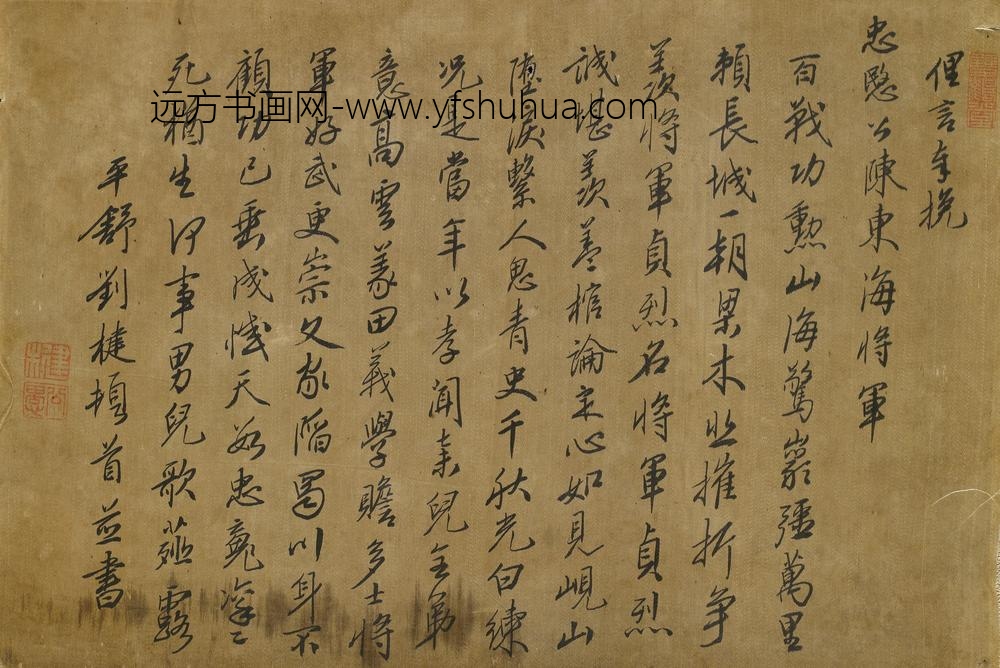 俚言奉挽
忠愍公陳東海將軍
百戰功勲山海驚巖疆萬里
賴長城一朝梁木悲摧折爭
羨將軍貞烈名將軍貞烈
誠堪羨蓋棺論定心如見峴山
墮淚繫人思青史千秋光白練
況是當年以孝聞素兒全弟
意高雲義田義學贍多士將
軍好武更崇文敵陷蜀川身不
顧功已垂成憾天數忠魂凜凜
死猶生何事男兒歌薤露
平舒劉楗頓首並書
远方书画网-www.yfshuhua.com